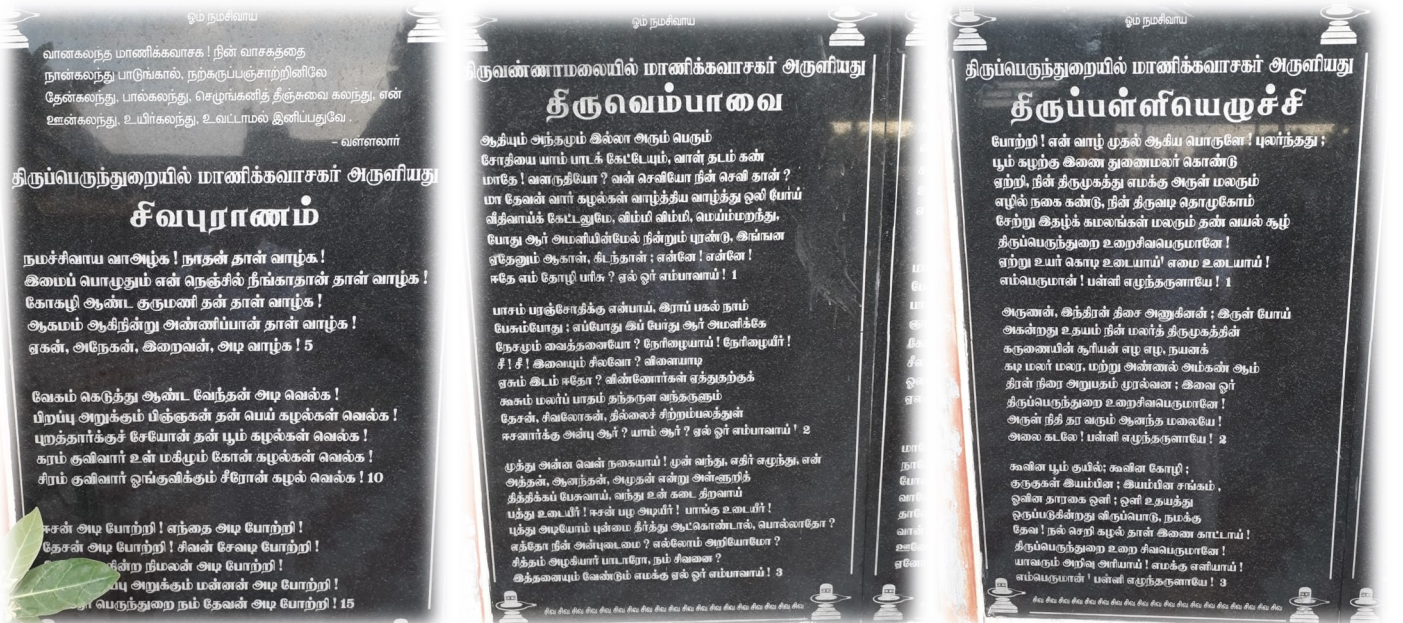 ஓம் நமசிவாய
வானகலந்த மாணிக்கவாசக ! நின் வாசகத்தை
நான்கலந்து பாடுங்கால், நற்கருப்பஞ்சாற்றினிலே
தேன்கலந்து, பால்கலந்து, செழுங்கனித் தீஞ்சுவை கலந்து, என்
ஊன்கலந்து, உயிர்கலந்து, உவட்டாமல் இனிப்பதுவே .
– வள்ளலார்
திருப்பெருந்துறையில் மாணிக்கவாசகர் அருளியது
சிவபுராணம்
நமச்சிவாய வாஅழ்க ! நாதன் தாள் வாழ்க !
இமைப் பொழுதும் என் நெஞ்சில் நீங்காதான் தாள் வாழ்க !
கோகழி ஆண்ட குருமணி தன் தாள் வாழ்க !
ஆகமம் ஆகிநின்று அண்ணிப்பான் தாள் வாழ்க !
ஏகன், அநேகன், இறைவன், அடி வாழ்க ! 5
வேகம் கெடுத்து ஆண்ட வேந்தன் அடி வெல்க !
பிறப்பு அறுக்கும் பிஞ்ஞகன் தன் பெய் கழல்கள் வெல்க !
புறத்தார்க்குச் சேயோன் தன் பூம் கழல்கள் வெல்க !
கரம் குவிவார் உள் மகிழும் கோன் கழல்கள் வெல்க !
சிரம் குவிவார் ஓங்குவிக்கும் சீரோன் கழல் வெல்க ! 10
ஈசன் அடி போற்றி ! எந்தை அடி போற்றி !
தேசன் அடி போற்றி ! சிவன் சேவடி போற்றி !
நின்ற நிமலன் அடி போற்றி !
அறுக்கும் மன்னன் அடி போற்றி !
பெருந்துறை நம் தேவன் அடி போற்றி ! 15
ஓம் நமசிவாய
திருவண்ணாமலையில் மாணிக்கவாசகர் அருளியது
திருவெம்பாவை
ஆதியும் அந்தமும் இல்லா அரும் பெரும்
சோதியை யாம் பாடக் கேட்டேயும், வாள் தடம் கண்
மாதே ! வளருதியோ ? வன் செவியோ நின் செவி தான் ?
மா தேவன் வார் கழல்கள் வாழ்த்திய வாழ்த்து ஒலி போய்
வீதிவாய்க் கேட்டலுமே, விம்மி விம்மி, மெய்ம்மறந்து,
போது ஆர் அமளியின்மேல் நின்றும் புரண்டு, இங்ஙன
ஏதேனும் ஆகாள், கிடந்தாள் ; என்னே ! என்னே !
ஈதே எம் தோழி பரிசு ? ஏல் ஓர் எம்பாவாய் ! 1
பாசம் பரஞ்சோதிக்கு என்பாய், இராப் பகல் நாம்
பேசும்போது ; எப்போது இப் போது ஆர் அமளிக்கே
நேசமும் வைத்தனையோ ? நேரிழையாய் ! நேரிழையீர் !
சீ ! சீ ! இவையும் சிலவோ ? விளையாடி
ஏசும் இடம் ஈதோ ? விண்ணோர்கள் ஏத்துதற்குக்
கூசும் மலர்ப் பாதம் தந்தருள வந்தருளும்
தேசன், சிவலோகன், தில்லைச் சிற்றம்பலத்துள்
ஈசனார்க்கு அன்பு ஆர் ? யாம் ஆர் ? ஏல் ஓர் எம்பாவாய் ! 2
முத்து அன்ன வெள் நகையாய் ! முன் வந்து, எதிர் எழுந்து, என்
அத்தன், ஆனந்தன், அமுதன் என்று அள்ளூறித்
தித்திக்கப் பேசுவாய், வந்து உன் கடை திறவாய்
பத்து உடையீர் ! ஈசன் பழ அடியீர் ! பாங்கு உடையீர் !
புத்து அடியோம் புன்மை தீர்த்து ஆட்கொண்டால், பொல்லாதோ ?
எத்தோ நின் அன்புடைமை ? எல்லோம் அறியோமோ ?
சித்தம் அழகியார் பாடாரோ, நம் சிவனை ?
இத்தனையும் வேண்டும் எமக்கு ஏல் ஓர் எம்பாவாய் ! 3
சிவ சிவ சிவ சிவ சிவ சிவ சிவ சிவ சிவ சிவ சிவ சிவ சிவ சிவ சிவ சிவ சிவ
ஓம் நமசிவாய
திருப்பெருந்துறையில் மாணிக்கவாசகர் அருளியது
திருப்பள்ளியெழுச்சி
போற்றி ! என் வாழ் முதல் ஆகிய பொருளே ! புலர்ந்தது ;
பூம் கழற்கு இணை துணைமலர் கொண்டு
ஏற்றி, நின் திருமுகத்து எமக்கு அருள் மலரும்
எழில் நகை கண்டு, நின் திருவடி தொழுகோம்
சேற்று இதழ்க் கமலங்கள் மலரும் தண் வயல் சூழ்
திருப்பெருந்துறை உறைசிவபெருமானே !
ஏற்று உயர் கொடி உடையாய் ! எமை உடையாய் !
எம்பெருமான் ! பள்ளி எழுந்தருளாயே ! 1
அருணன், இந்திரன் திசை அணுகினன் ; இருள் போய்
அகன்றது உதயம் நின் மலர்த் திருமுகத்தின்
கருணையின் சூரியன் எழ எழ, நயனக்
கடி மலர் மலர, மற்று அண்ணல் அம்கண் ஆம்
திரள் நிரை அறுபதம் முரல்வன ; இவை ஓர்
திருப்பெருந்துறை உறைசிவபெருமானே !
அருள் நிதி தர வரும் ஆனந்த மலையே !
அலை கடலே ! பள்ளி எழுந்தருளாயே ! 2
கூவின பூம் குயில்; கூவின கோழி ;
குருகுகள் இயம்பின ; இயம்பின சங்கம் ,
ஓவின தாரகை ஒளி ; ஒளி உதயத்து
ஒருப்படுகின்றது விருப்பொடு, நமக்கு
தேவ ! நல் செறி கழல் தாள் இணை காட்டாய் !
திருப்பெருந்துறை உறை சிவபெருமானே !
யாவரும் அறிவு அரியாய் ! எமக்கு எளியாய் !
எம்பெருமான் ! பள்ளி எழுந்தருளாயே ! 3
சிவ சிவ சிவ சிவ சிவ சிவ சிவ சிவ சிவ சிவ சிவ சிவ சிவ சிவ சிவ சிவ